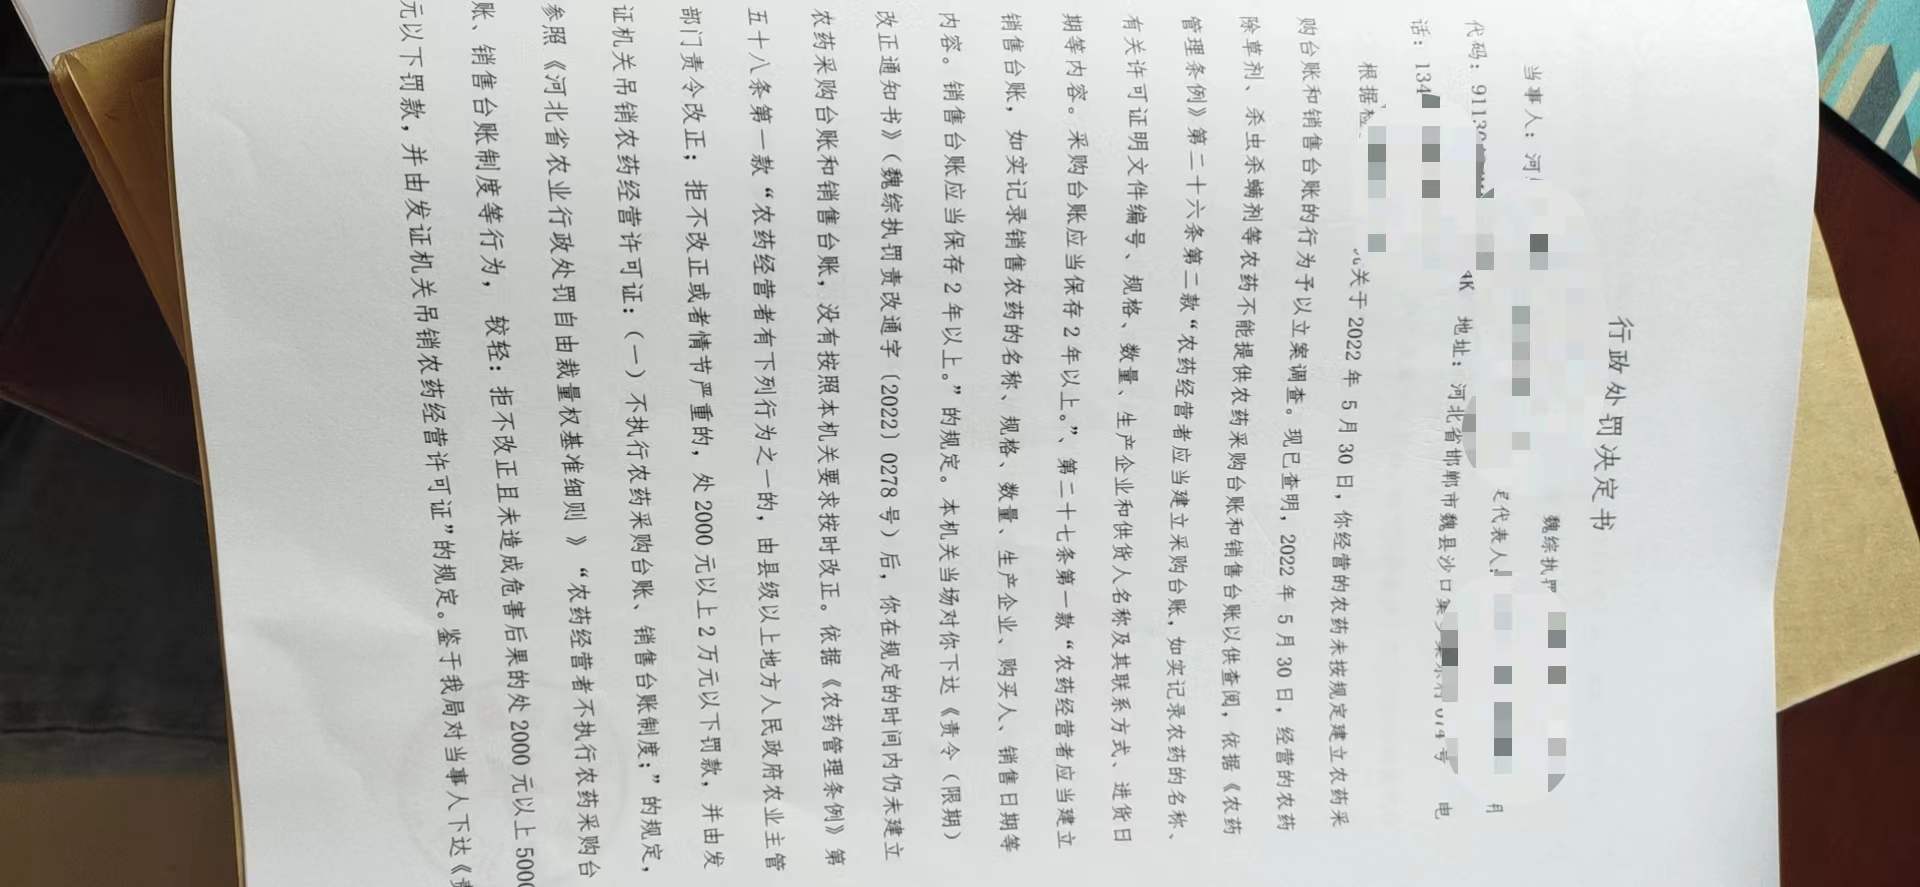 行政处罚决定书
魏综执罚
当事人：河 代表人： 月
代码：9113 地址：河北省邯郸市魏县沙口集 号 电
话：134
根据检 关于2022年5月30日，你经营的农药未按规定建立农药采
购台账和销售台账的行为予以立案调查。现已查明，2022年5月30日，经营的农药
除草剂、杀虫杀螨剂等农药不能提供农药采购台账和销售台账以供查阅，依据《农药
管理条例》第二十六条第二款“农药经营者应当建立采购台账，如实记录农药的名称、
有关许可证明文件编号、规格、数量、生产企业和供货人名称及其联系方式、进货日
期等内容。采购台账应当保存2年以上。”、第二十七条第一款“农药经营者应当建立
销售台账，如实记录销售农药的名称、规格、数量、生产企业、购买人、销售日期等
内容。销售台账应当保存2年以上。”的规定。本机关当场对你下达《责令（限期）
改正通知书》（魏综执罚责改通字〔2022〕0278号）后，你在规定的时间内仍未建立
农药采购台账和销售台账，没有按照本机关要求按时改正。依据《农药管理条例》第
五十八条第一款“农药经营者有下列行为之一的，由县级以上地方人民政府农业主管
部门责令改正；拒不改正或者情节严重的，处2000元以上2万元以下罚款，并由发
证机关吊销农药经营许可证：（一）不执行农药采购台账、销售台账制度；”的规定，
参照《河北省农业行政处罚自由裁量权基准细则》“农药经营者不执行农药采购台
账、销售台账制度等行为，较轻：拒不改正且未造成危害后果的处2000元以上5000
元以下罚款，并由发证机关吊销农药经营许可证”的规定。鉴于我局对当事人下达《责